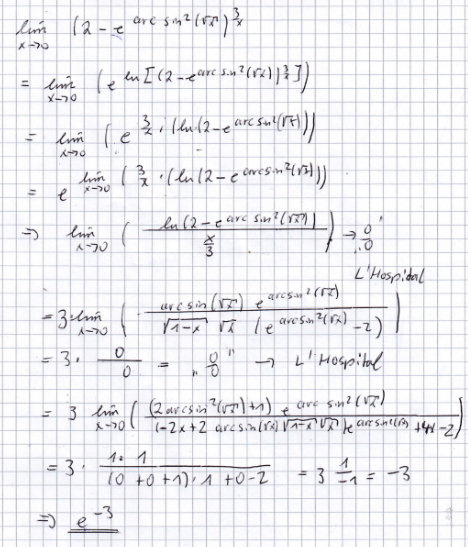 lim x→0 (2 - e^(arc sin²(√x)))^(3/x)
= lim x→0 (e^(ln[(2-e^(arc sin²(√x)))^(3/x)]))
= lim x→0 (e^(3/x · (ln(2-e^(arc sin²(√x))))))
= e^(lim x→0 (3/x · (ln(2-e^(arcsin²(√x))))))
=> lim x→0 (ln(2-e^(arc sin²(√x))) / (x/3)) → "0/0"
L'Hospidal
= 3·lim x→0 (arcsin(√x) e^(arcsin²(√x)) / (√(1-x) √x (e^(arcsin²(√x)) -2)))
= 3 · 0/0 = "0/0" → L'Hospidal
= 3 lim x→0 ((2arcsin²(√x)+1) e^(arc sin²(√x)) / ((-2x+2 arcsin(√x) √(1-x) √x) e^(arcsin²(√x)) +4x-2))
= 3 · 1·1 / ((0+0+1)·1+0-2) = 3 1/-1 = -3
=> e^(-3)